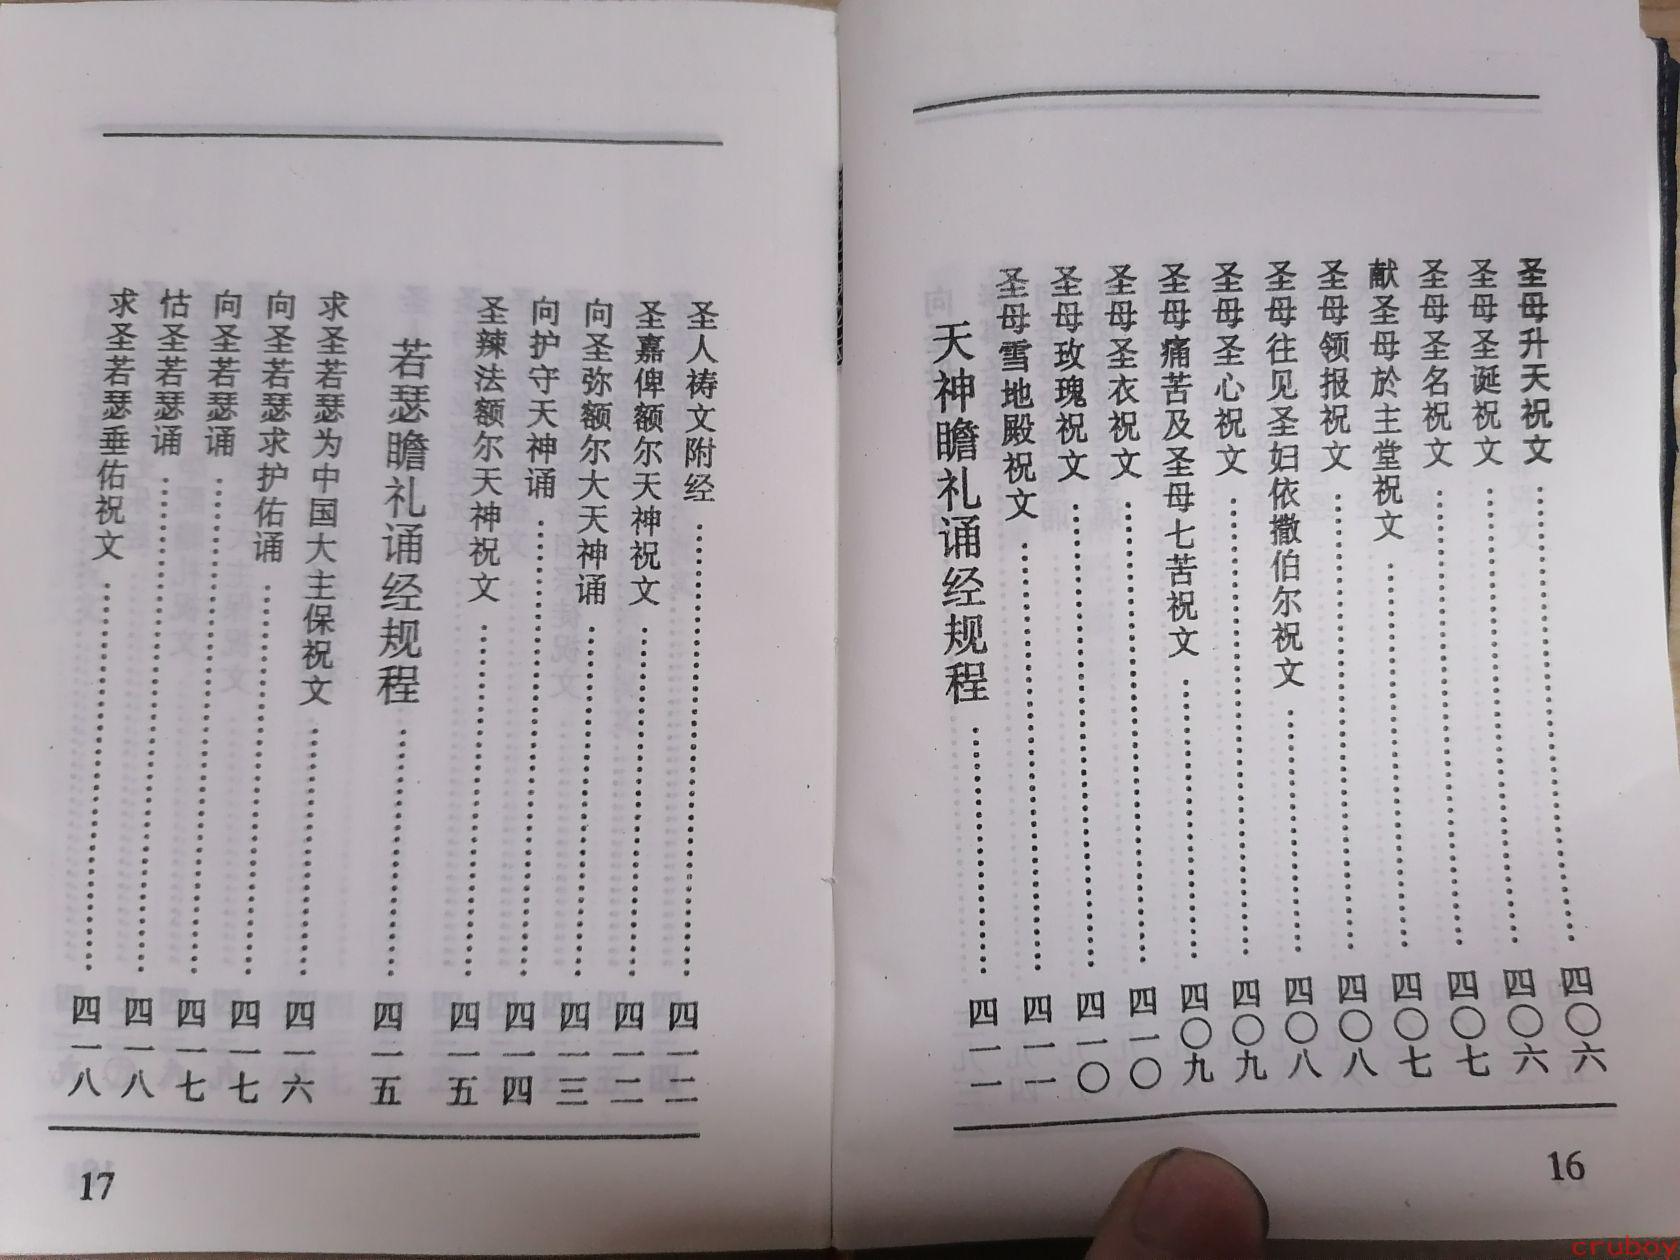 圣母升天祝文……四〇六
圣母圣诞祝文……四〇六
圣母圣名祝文……四〇七
献圣母於主堂祝文……四〇七
圣母领报祝文……四〇八
圣母往见圣妇依撒伯尔祝文……四〇八
圣母圣心祝文……四〇九
圣母痛苦及圣母七苦祝文……四〇九
圣母圣衣祝文……四一〇
圣母玫瑰祝文……四一〇
圣母雪地殿祝文……四一一
天神瞻礼诵经规程……四一一
16
圣人祷文附经……四一二
圣嘉俾额尔天神祝文……四一二
向圣弥额尔大天神诵……四一三
向护守天神诵……四一四
圣辣法额尔天神祝文……四一五
若瑟瞻礼诵经规程……四一五
求圣若瑟为中国大主保祝文……四一六
向圣若瑟求护佑诵……四一七
向圣若瑟诵……四一七
怙圣若瑟诵……四一八
求圣若瑟垂佑祝文……四一八
17
cruboy